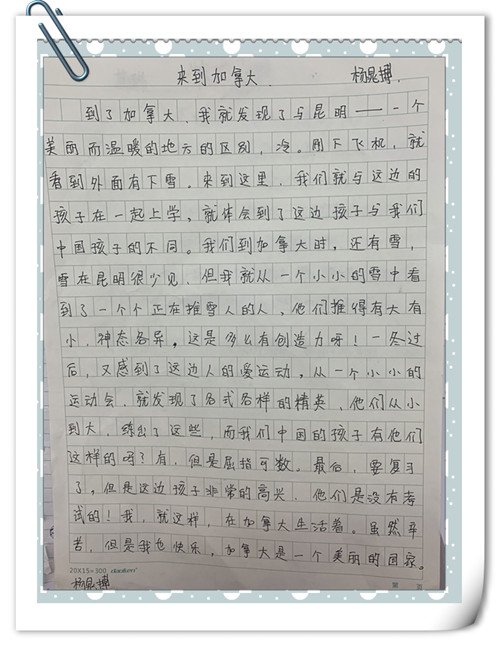 来到加拿大. 杨晁搏.
到了加拿大、我就发现了与昆明——一个
美丽而温暖的地方的区别,冷。刚下飞机,就
看到外面有下雪。来到这里、我们就与这边的
孩子在一起上学,就体会到了这边孩子与我们
中国孩子的不同。我们到加拿大时,还有雪,
雪在昆明很少见、但我就从一个小小的雪中看
到了一个个正在推雪人的人,他们推得有大有
小、神态各异。这是多么有创造力呀!一冬过
后,又感到了这边人的爱运动。从一个小小的
运动会、就发现了各式各样的精英、他们从小
到大、练出了这些,而我们中国的孩子有他们
这样的吗?有,但是屈指可数。最后,要复习
了。但是这边孩子非常的高兴、他们是没有考
试的!我,就这样,在加拿大生活着。虽然辛
苦,但是我也快乐,加拿大是一个美丽的国家。
20X15=300
杨晁搏 第 页